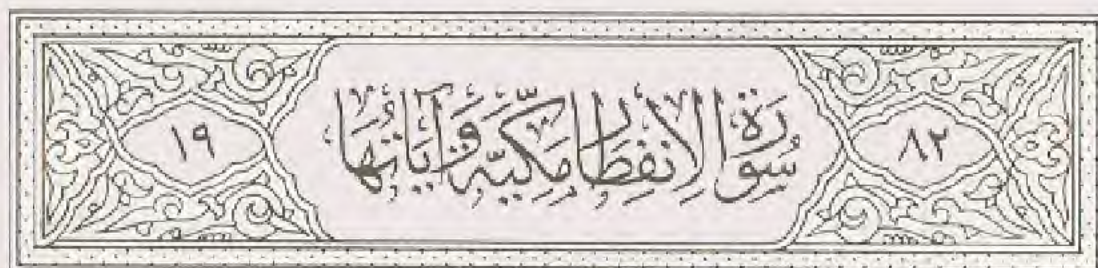 ٨٢ سُورَةُ الانفِطَارِ مَكِّيَّة وَآيَاتُهَا ١٩